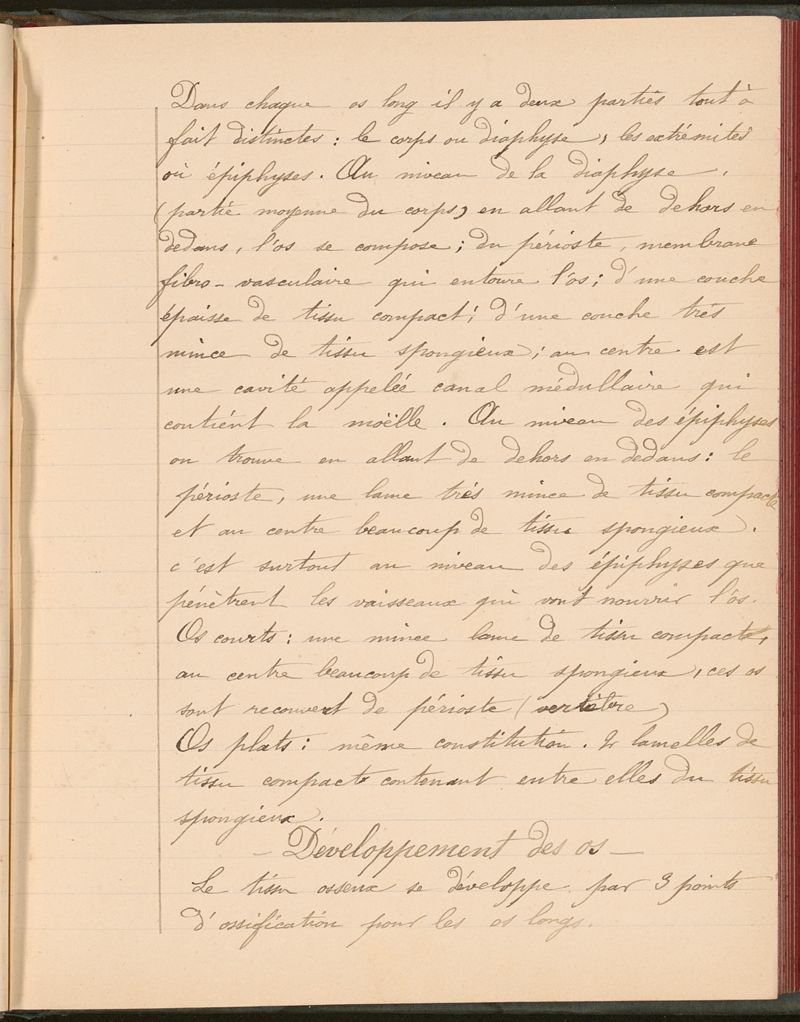 Dans chaque os long il y a deux parties tout à
fait distinctes : le corps ou diaphyse, les extrémités
où épiphyses. Au niveau de la diaphyse,
(partie moyenne du corps) en allant de dehors en
dedans, l'os se compose ; du périoste, membrane
fibro-vasculaire qui entoure l'os ; d'une couche
épaisse de tissu compact ; d'une couche très
mince de tissu spongieux ; au centre est
une cavité appelée canal médullaire qui
contient la moëlle. Au niveau des épiphyses
on trouve en allant de dehors en dedans : le
périoste, une lame très mince de tissu compacte
et au centre beaucoup de tissu spongieux.
c'est surtout au niveau des épiphyses que
pénètrent les vaisseaux qui vont nourrir l'os.
Os courts : une mince lame de tissu compacte,
au centre beaucoup de tissu spongieux, ces os
sont recouvert de périoste (vertèbre)
Os plats : même constitution. 2 lamelles de
tissu compact contenant entre elles du tissu
spongieux.
— Développement des os —
Le tissu osseux se développe par 3 points
d'ossification pour les os longs.